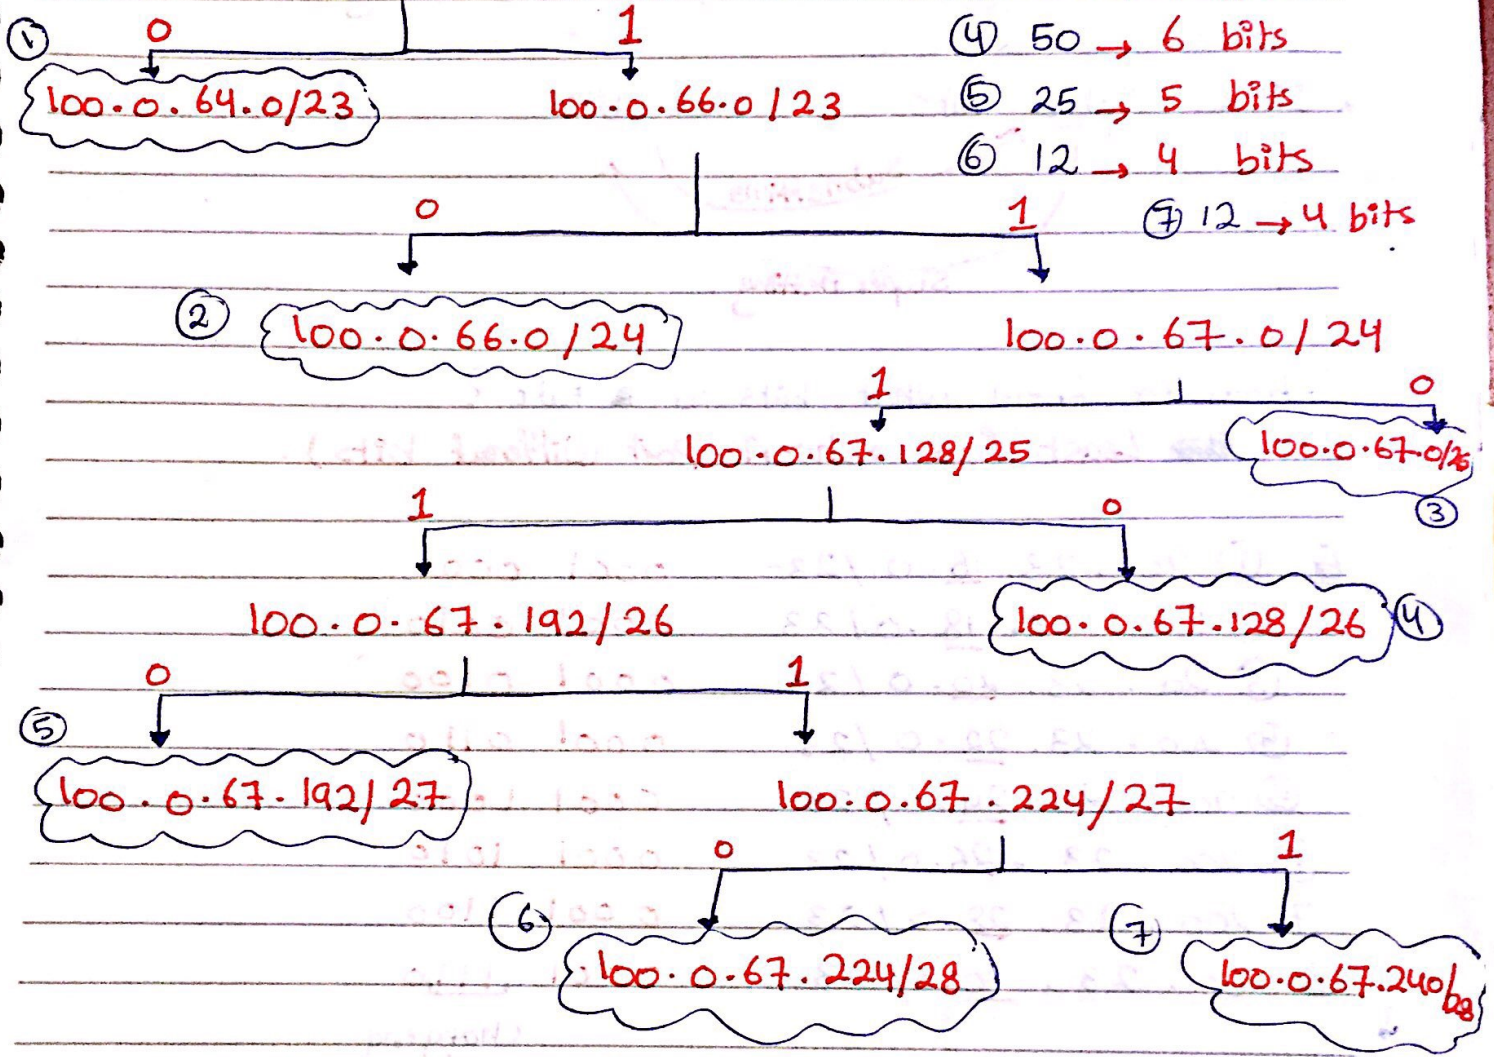 ① 0 1 ④ 50 → 6 bits
100.0.64.0/23 100.0.66.0/23 ⑤ 25 → 5 bits
⑥ 12 → 4 bits
0 1 ⑦ 12 → 4 bits
② 100.0.66.0/24 100.0.67.0/24
1 0
100.0.67.128/25 100.0.67.0/25
③
1 0
100.0.67.192/26 100.0.67.128/26 ④
0 1
⑤
100.0.67.192/27 100.0.67.224/27
0 1
⑥ ⑦
100.0.67.224/28 100.0.67.240/28